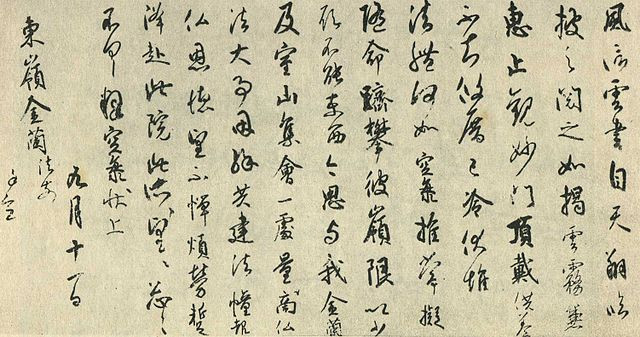 風信雲書自天翔臨
披之閲之如掲雲霧兼
惠止觀妙門頂戴供養
不知攸厝已冷伏惟
法體何如空海推常擬
隨命躋攀彼嶺限以少
願不能東西今思与我金蘭
及室山集會一處量商仏
法大事因縁共建法幢報
仏恩徳望不憚煩勞蹔
降赴此院此所望々々忩々
不具釋空海状上
九月十一日
東嶺金蘭法前
謹空